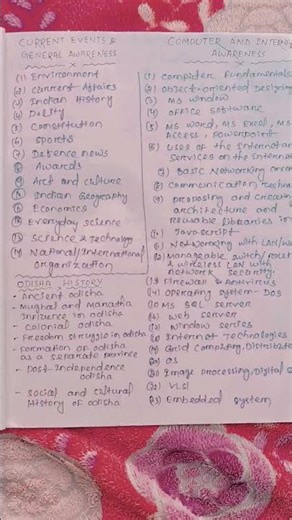 CURRENT EVENTS &
GENERAL AWARENESS
(1) Environment
(2) Current Affairs
(3) Indian History
(4) Polity
(5) Constitution
(6) Sports
(7) Defence news
(8) Awards
(9) Art and culture
(10) Indian Geography
(11) Economics
(12) Everyday science
(13) Science & Technology
(14) National/International
Organization
ODISHA HISTORY
- Ancient odisha
- Mughal and Maratha
Influence in odisha
- colonial odisha
- Freedom struggle in odisha
- Formation of odisha
as a separate province
- Post-Independence
odisha
- Social and cultural
History of odisha
COMPUTER AND INTERNE
AWARENESS
(1) Computer Fundamentals
(2) object-oriented Designing
(3) MS window
(4) office software
(5) MS word, MS Excel, MS
Access, Powerpoint
(6) Uses of the Internet an
Services on the Internet
(7) Basic Networking
(8) Communication techno
(9) and creating
architecture and
libraries
(10) Javascript
(11) Networking with LAN/W
(12) Manageable switch/rout
& wireless LAN with
network security.
(13) Firewall & Antivirus
(14) operating system - DOS
(15) MS SQL server
(16) Web server
(17) Window series
(18) Internet Technologies
(19) Grid Computing, Distribute
(20) OS
(21) Image Processing/Digital S
(22) VLSI
(23) Embedded System